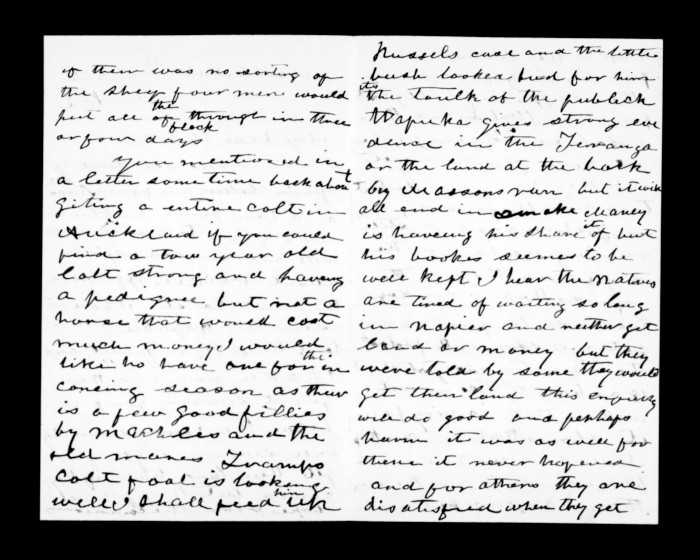 if there was no sorting of
the sheep four men would
put all of the flock through in three
or four days
You mentioned in
a letter some time back about
giting a entire colt in
Auckland if you could
find a tow year old
Colt strong and having
a pedigree but not a
horse that would cost
much money I would
like to have one for this in
coming season as ther
is a few good fillies
by and the
old mares Tramps
Colt foal is looking
well I shall feed him
Russels case and the little
bush looked bad for him
its the taulk of the publeck
Wapuka gives strong eve
dence in the
or the land at the back
by Massons run but it will
all end in smoke Maney
is haveing his share of it but
his bookes seemes to be
well kept I hear the Natives
are tired of waiting so long
in Napier and neither get
land or money but they
were told by some they would
get their land this enquiery
will do good and perhaps
harm it was as well for
them it never hapened
and for athers they are
disatisfied when they get